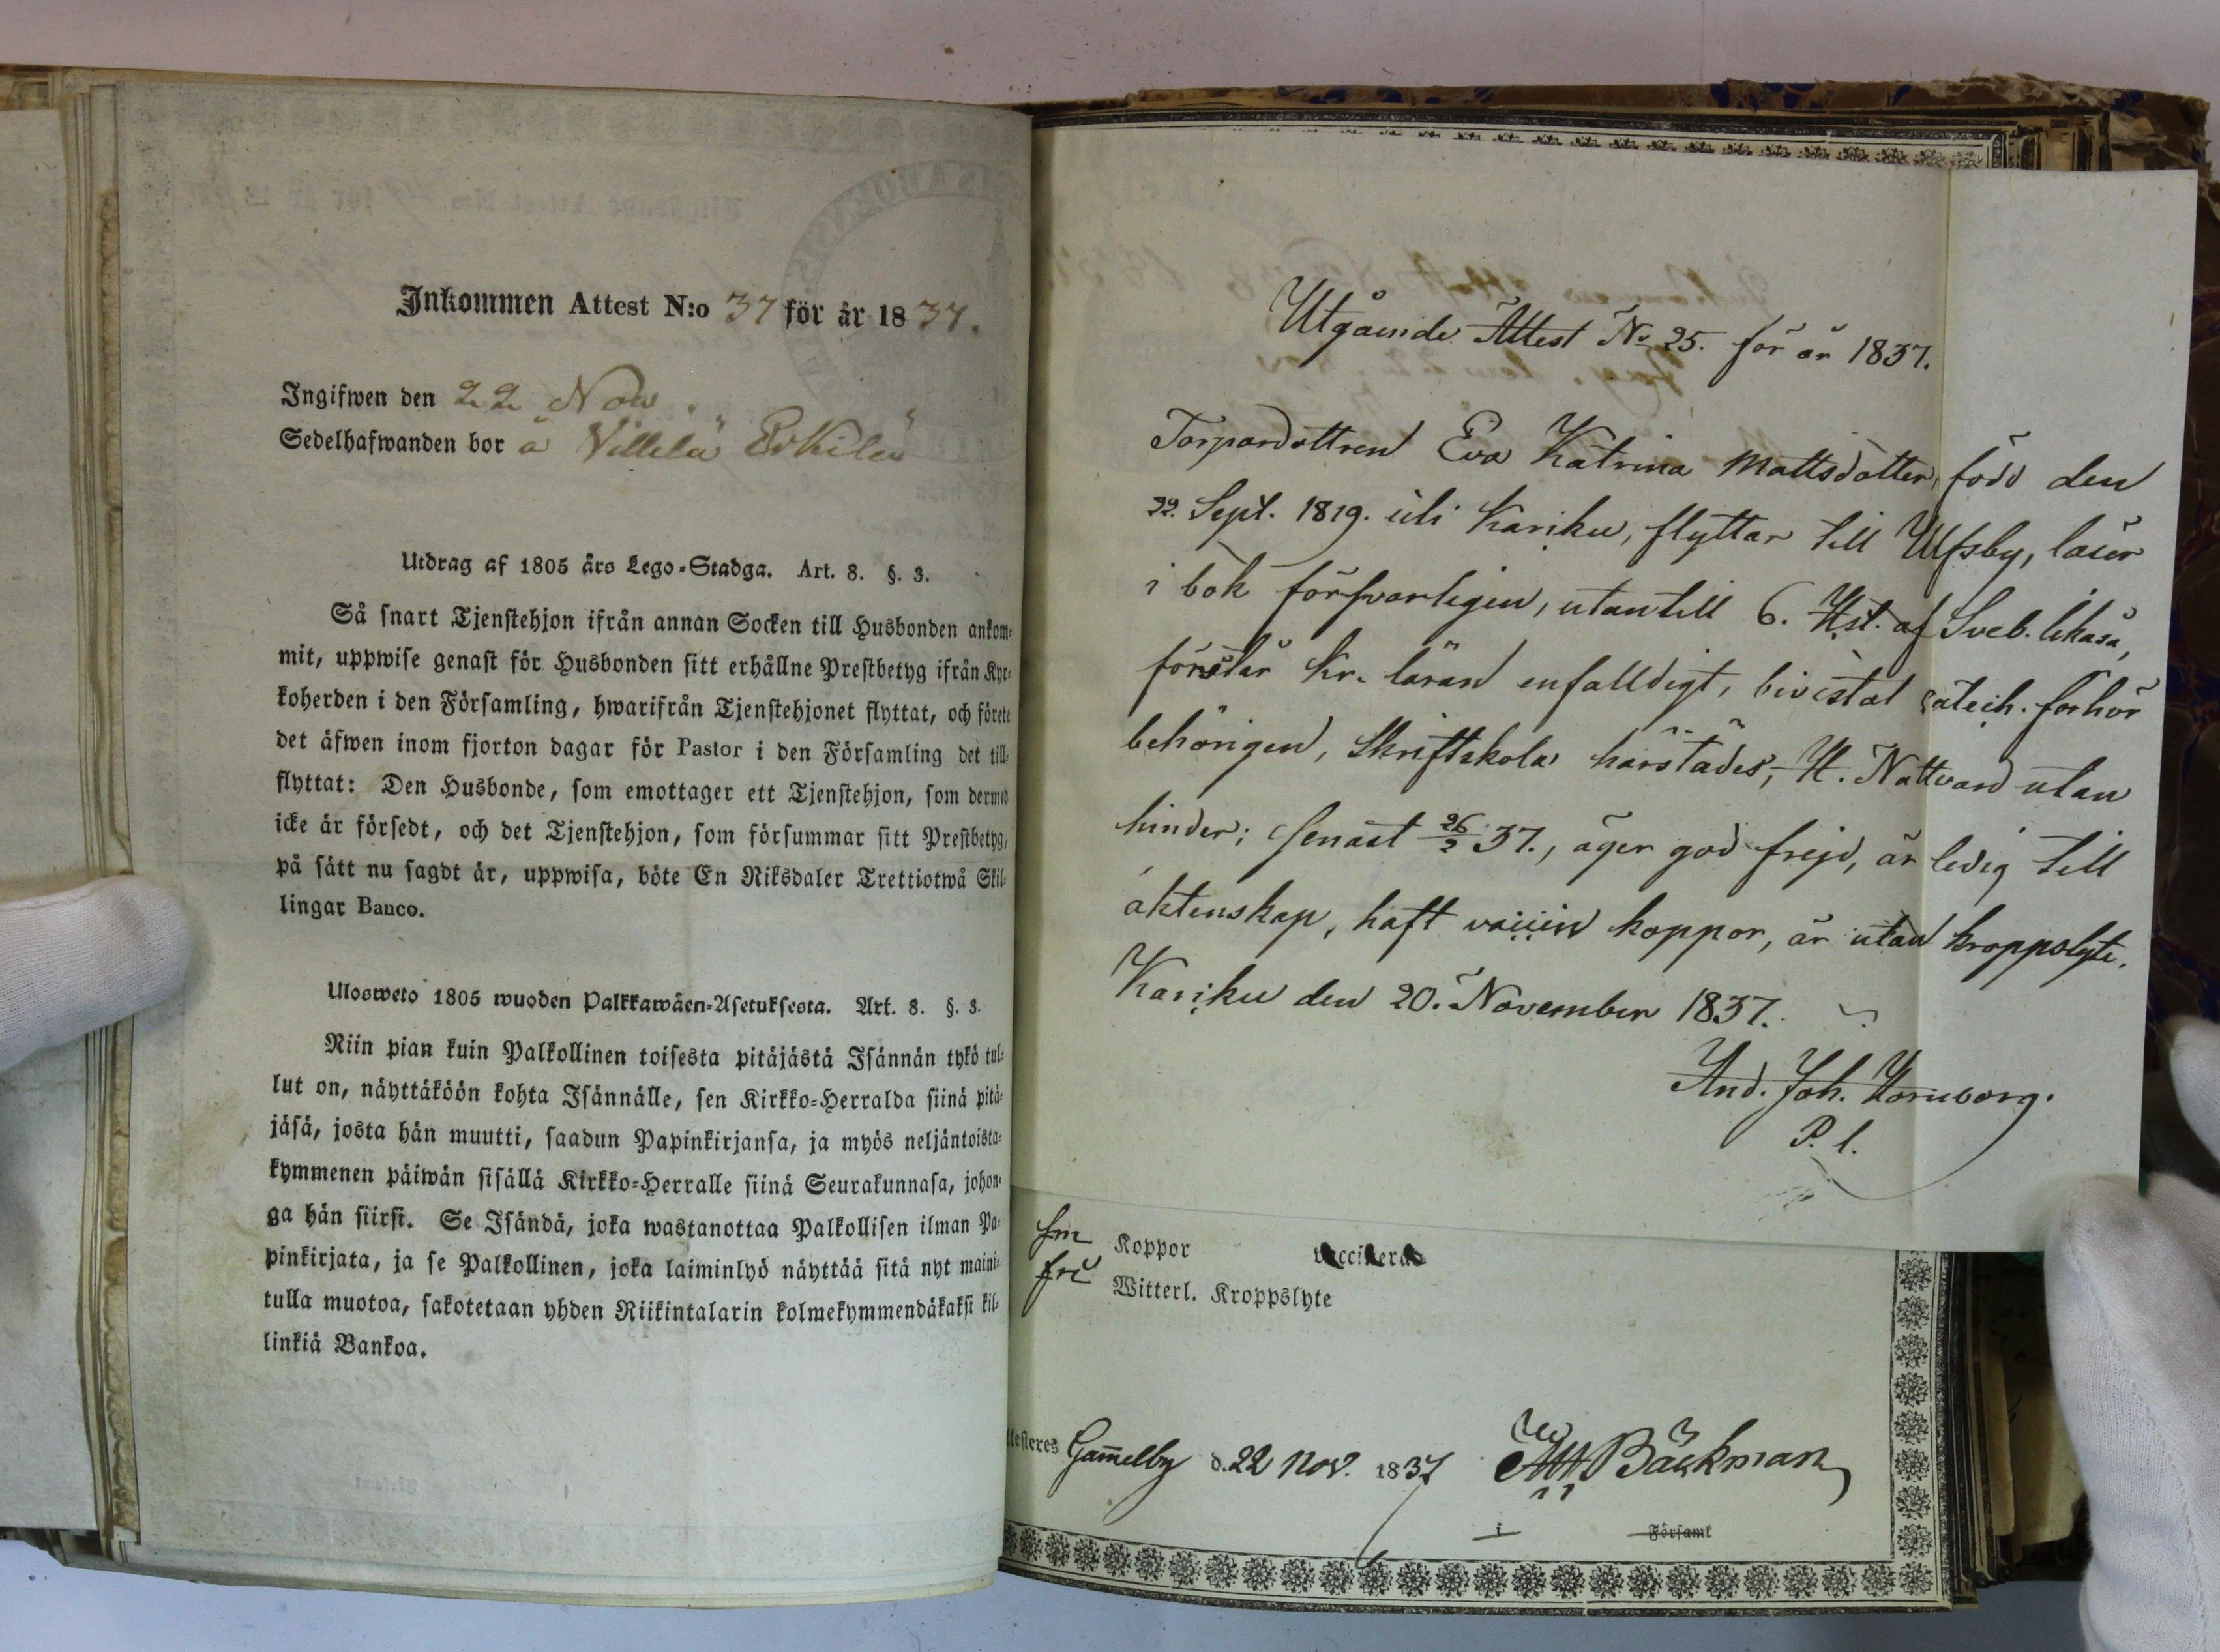 Inkommen Attest N:o 37 för år 1837.
Ingifwen den 22 Nov.
Sedelhafwanden bor å Villilä Erkilä
Utdrag af 1805 års Lego-Stadga. Art. 8. §. 3.
Så snart Tjenstehjon ifrån annan Socken till Husbonden ankom-
mit, uppwise genast för Husbonden sitt erhållne Prestbetyg ifrån Kyr-
koherden i den Församling, hwarifrån Tjenstehjonet flyttat, och förete
det äfwen inom fjorton dagar för Pastor i den Församling det till-
flyttat: Den Husbonde, som emottager ett Tjenstehjon, som dermed
icke är försedt, och det Tjenstehjon, som försummar sitt Prestbetyg,
på sätt nu sagdt är, uppwisa, böte En Riksdaler Trettiotwå Skil-
lingar Banco.
Ulosweto 1805 wuoden Palkkawäen-Asetuksesta. Art. 8. §. 3.
Niin pian kuin Palkollinen toisesta pitäjästä Isännän tykö tul-
lut on, näyttäköön kohta Isännälle, sen Kirkko-Herralda siinä pitä-
jäsä, josta hän muutti, saadun Papinkirjansa, ja myös neljäntoista-
kymmenen päiwän sisällä Kirkko-Herralle siinä Seurakunnasa, johon-
ga hän siirsi. Se Isändä, joka wastanottaa Palkollisen ilman Pa-
pinkirjata, ja se Palkollinen, joka laiminlyö näyttää sitä nyt maini-
tulla muotoa, sakotetaan yhden Riikintalarin kolmekymmendäkaksi kil-
linkiä Bankoa.
Utgående Attest No 25. för år 1837.
Torpardottren Eva Katrina Mattsdotter, född den
22. Sept. 1819. uti Kariku, flyttar till Ulfsby, läser
i bok försvarligen, utantill 6. Hst. af Sveb. likaså,
förstår Kr. läran enfalldigt, bivistat catech. förhör
behörigen, Skriftskola härstädes, H. Nattvard utan
hinder; senast 26/2 37., äger god frejd, är ledig till
äktenskap, haft koppor, är utan kroppslyte.
Kariku den 20. November 1837.
And. Joh. Hornborg.
P. l.
Koppor vaccinerad
fri Witterl. Kroppslyte
ttesteres Gamelby d. 22 Nov. 1837 Bäckman
i Församl